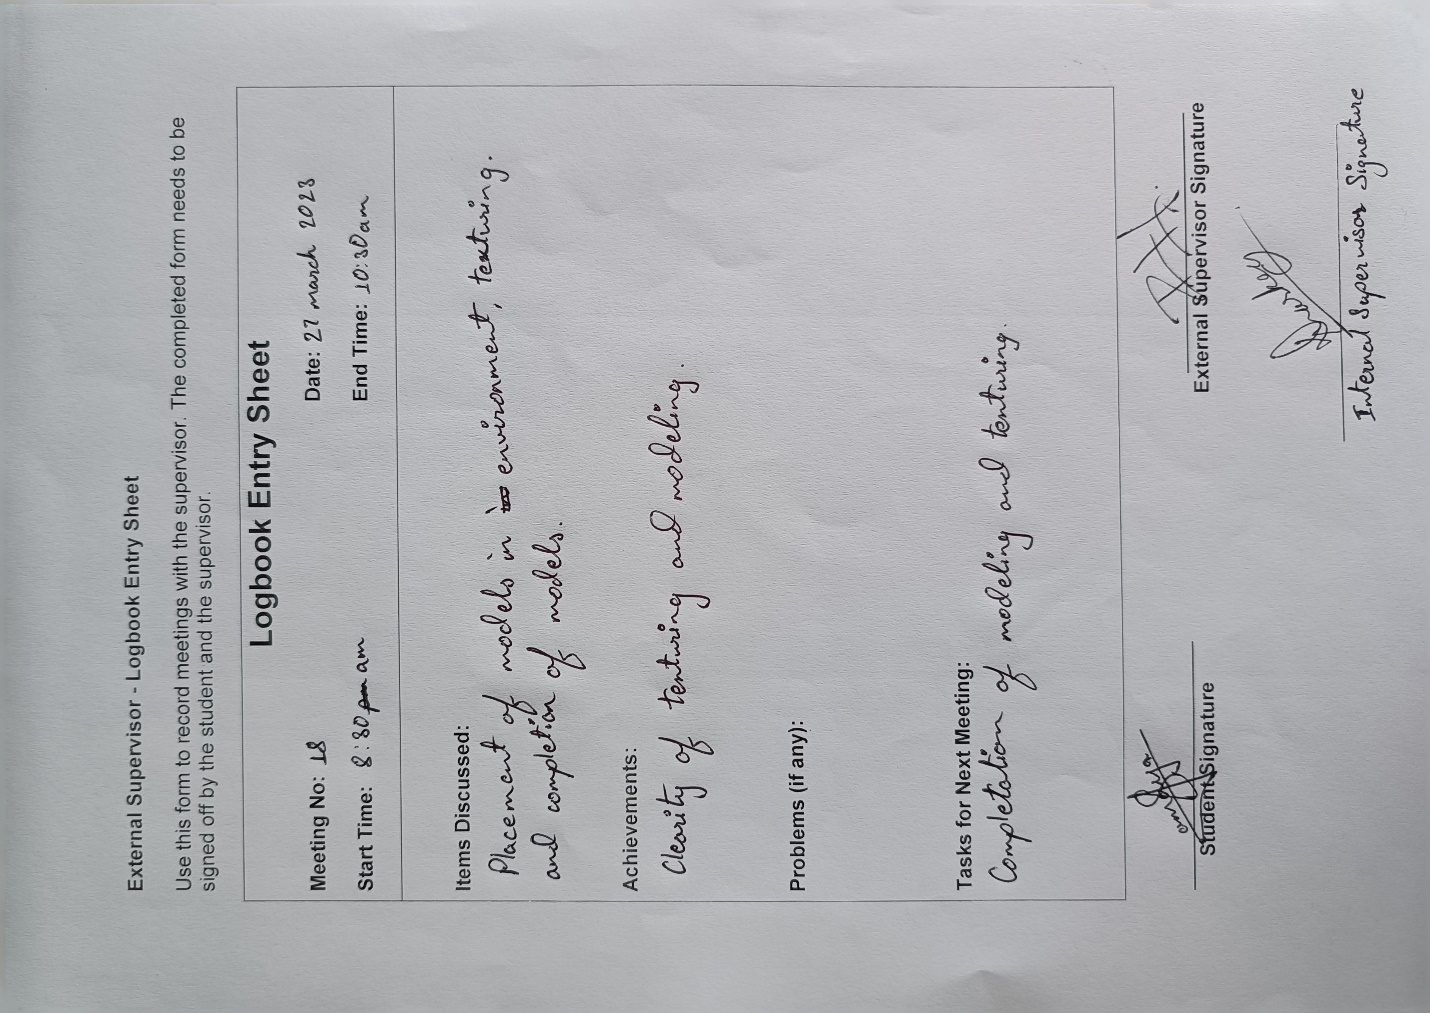 External Supervisor - Logbook Entry Sheet
Use this form to record meetings with the supervisor. The completed form needs to be
signed off by the student and the supervisor.
Logbook Entry Sheet
Meeting No: 18
Date: 27 march 2023
Start Time: 8:30 am
End Time: 10:30am
Items Discussed:
Placement of models in environment, texturing.
and completion of models.
Achievements:
Clearity of tenturing and modeling.
Problems (if any):
Tasks for Next Meeting:
Completation of modeling and tenturing.
Student Signature
External Supervisor Signature
Internal Supervisor Signature